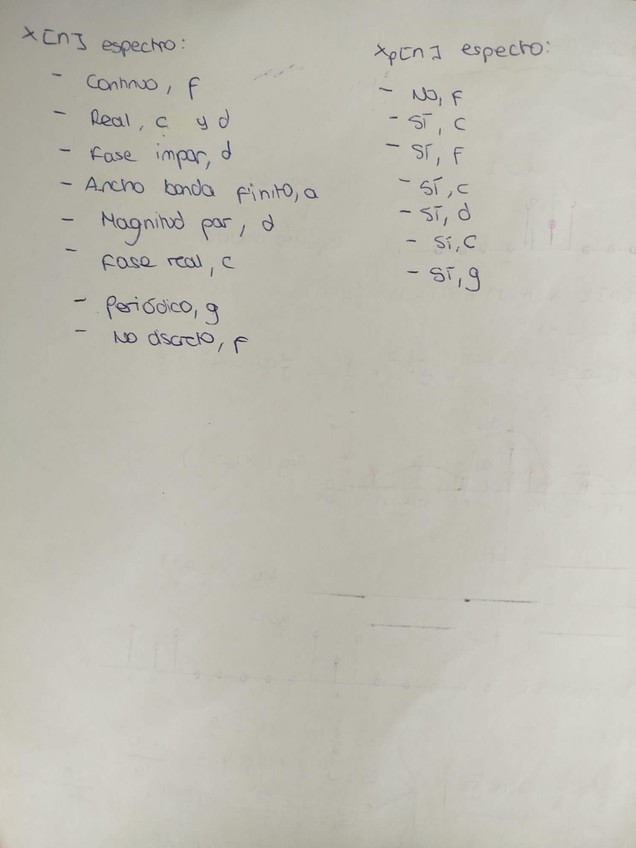 x[n] espectro:
- Continuo, f
- Real, c y d
- Fase impar, d
- Ancho banda finito, a
- Magnitud par, d
- Fase real, c
- Periódico, g
- No discreto, f
xp[n] espectro:
- No, f
- SÍ, c
- SÍ, f
- SÍ, c
- SÍ, d
- SÍ, c
- SÍ, g